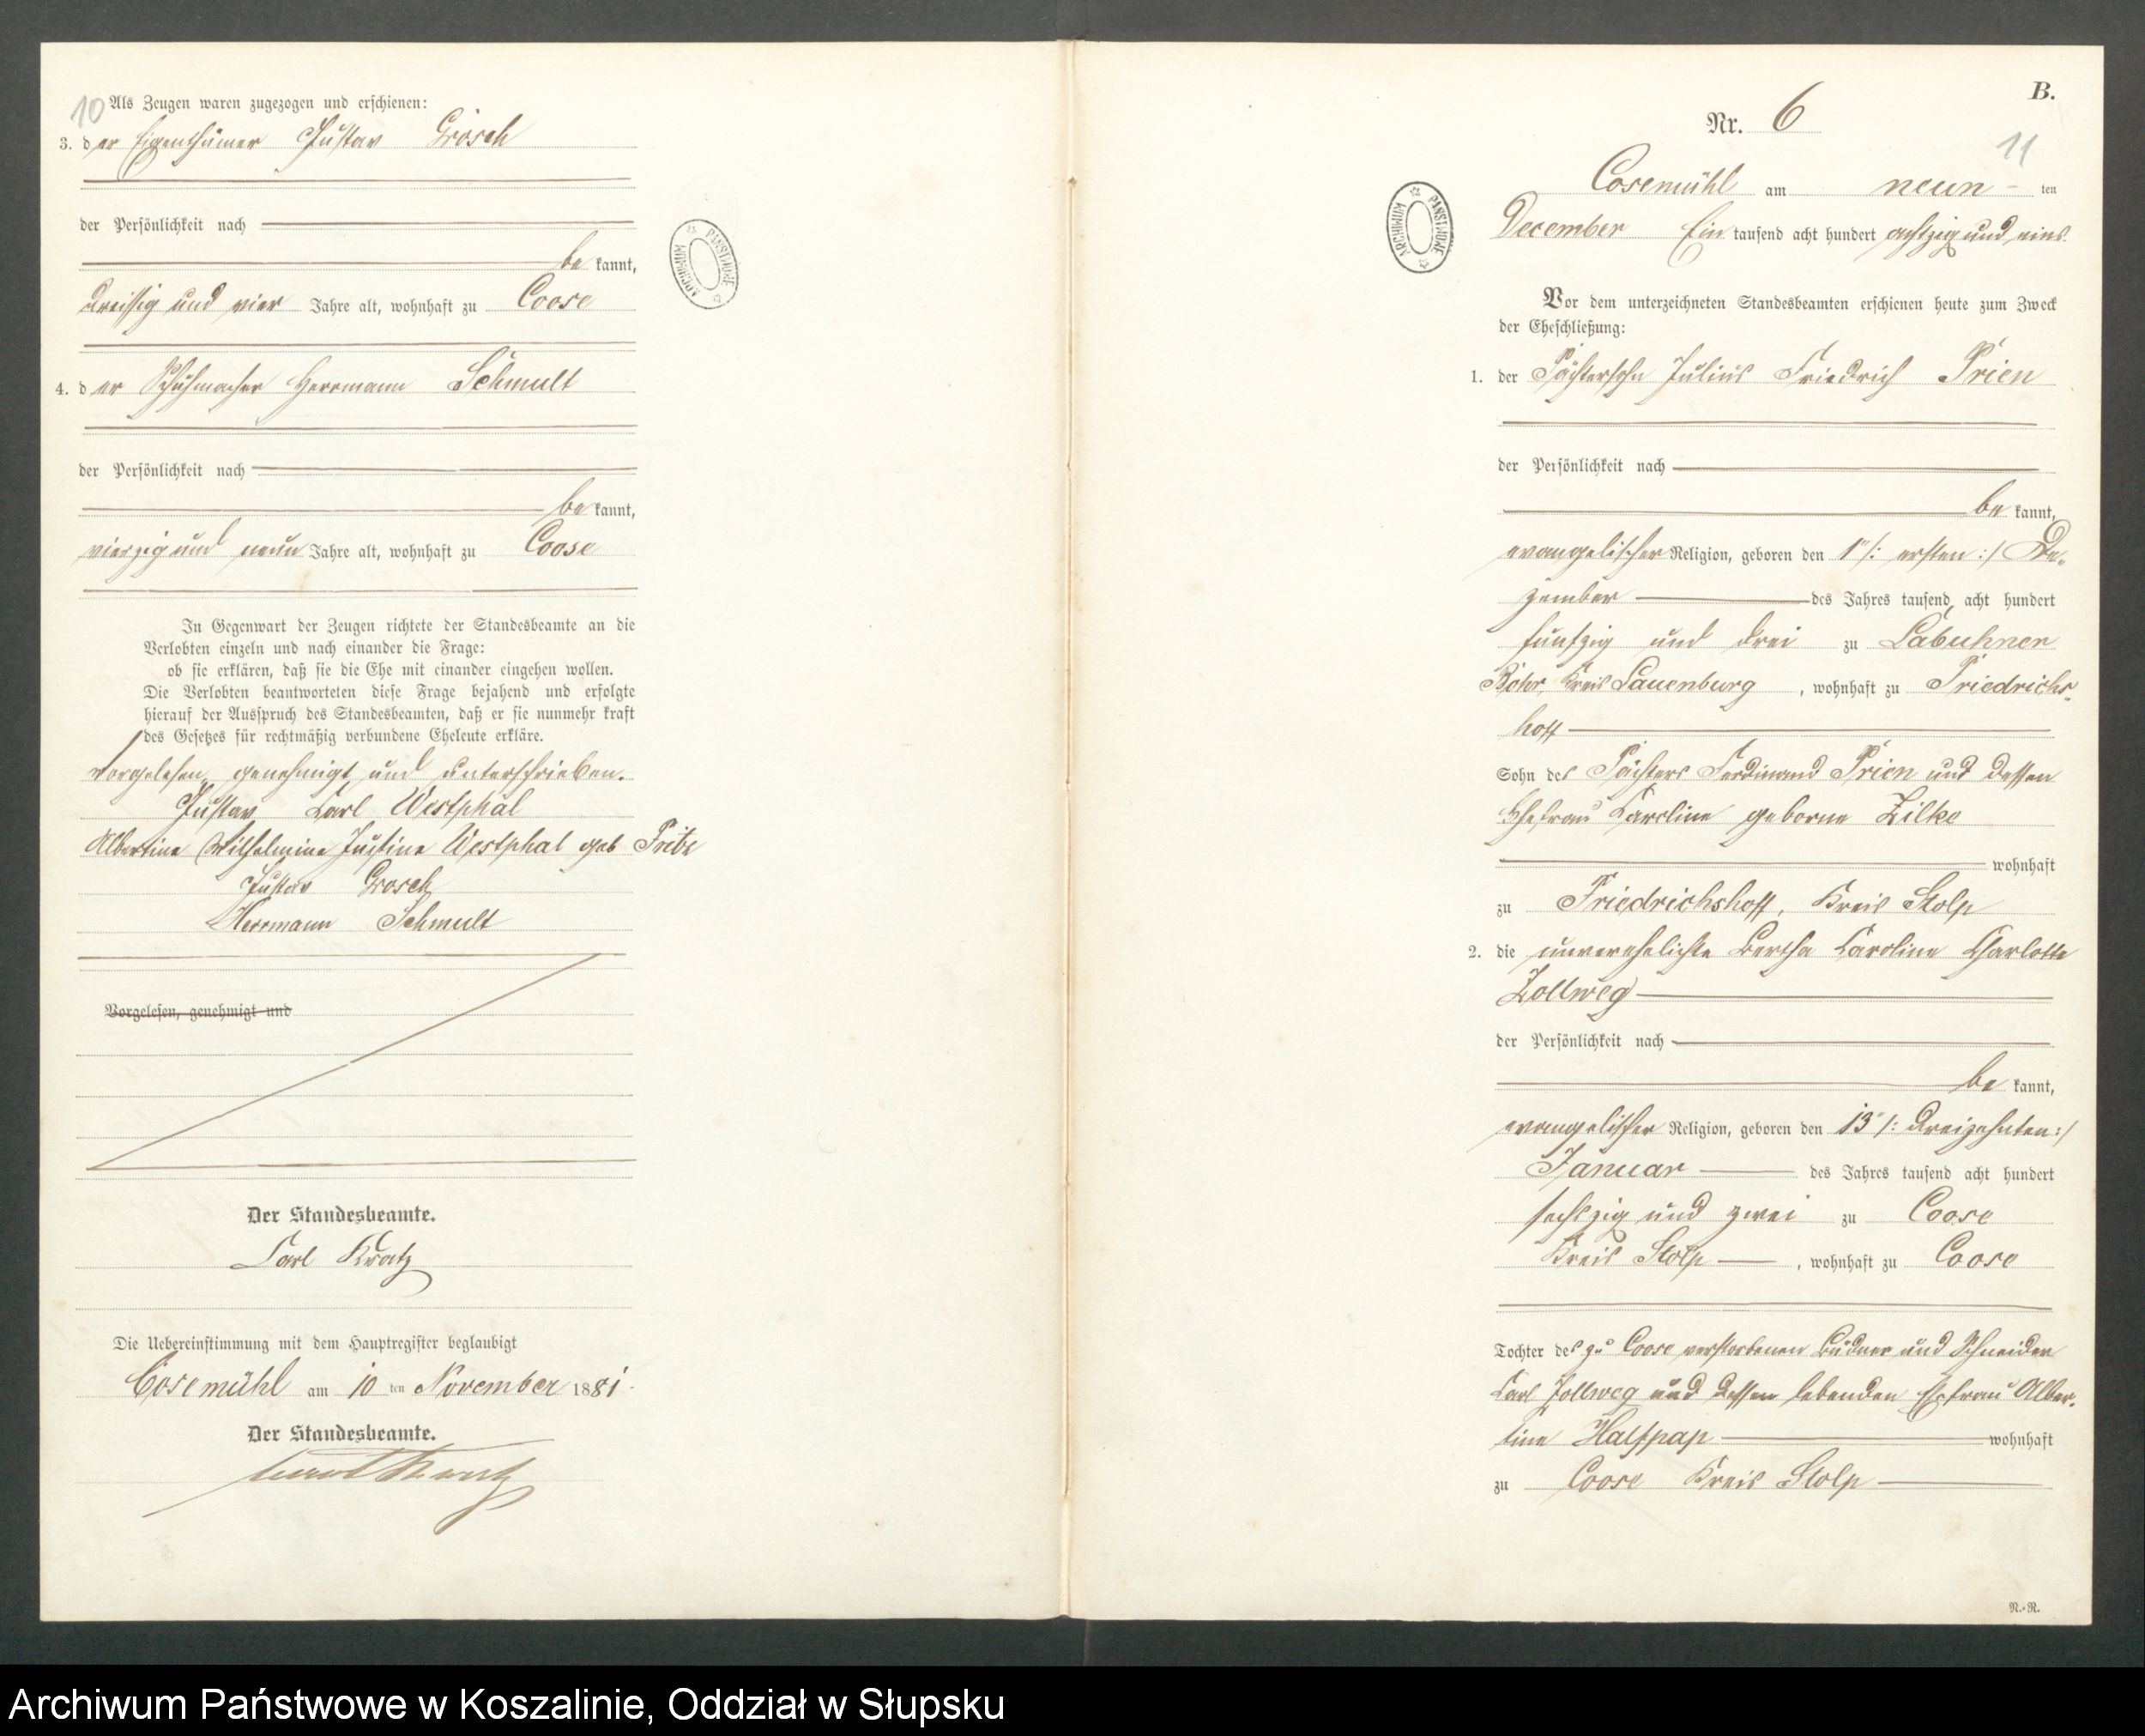 10
Als Zeugen waren zugezogen und erschienen:
3. der Eigenthümer Gustav Grosch
der Persönlichkeit nach
bekannt,
dreißig und vier Jahre alt, wohnhaft zu Coose
4. der Schuhmacher Herrmann Schmult
der Persönlichkeit nach
bekannt,
vierzig und neun Jahre alt, wohnhaft zu Coose
In Gegenwart der Zeugen richtete der Standesbeamte an die
Verlobten einzeln und nach einander die Frage:
ob sie erklären, daß sie die Ehe mit einander eingehen wollen.
Die Verlobten beantworteten diese Frage bejahend und erfolgte
hierauf der Ausspruch des Standesbeamten, daß er sie nunmehr kraft
des Gesetzes für rechtmäßig verbundene Eheleute erkläre.
Vorgelesen, genehmigt und unterschrieben.
Gustav Carl Westphal
Albertine Wilhelmine Justine Westphal geb Pribe
Gustav Grosch
Herrmann Schmult
Vorgelesen, genehmigt und
Der Standesbeamte.
Carl Kratz
Die Uebereinstimmung mit dem Hauptregister beglaubigt
Cosemühl am 10 ten November 1881.
Der Standesbeamte.
Carl Kratz
ARCHIWUM PAŃSTWOWE
B.
Nr. 6
11
Cosemühl am neun- ten
December Ein tausend acht hundert achtzig und eins
ARCHIWUM PAŃSTWOWE
Vor dem unterzeichneten Standesbeamten erschienen heute zum Zweck
der Eheschließung:
1. der Pächtersohn Julius Friedrich Prien
der Persönlichkeit nach
bekannt,
evangelischer Religion, geboren den 1" /: ersten :/ De-
zember des Jahres tausend acht hundert
funfzig und drei zu Labuhner
Röhr, Kreis Lauenburg, wohnhaft zu Friedrichs-
hoff
Sohn des Pächters Ferdinand Prien und dessen
Ehefrau Karoline geborne Zilke
wohnhaft
zu Friedrichshoff, Kreis Stolp
2. die unverehelichte Bertha Caroline Charlotte
Zollweg
der Persönlichkeit nach
bekannt,
evangelischer Religion, geboren den 13" /: dreizehnten :/
Januar des Jahres tausend acht hundert
sechszig und zwei zu Coose
Kreis Stolp, wohnhaft zu Coose
Tochter des zu Coose verstorbenen Büdner und Schneider
Carl Zollweg und dessen lebenden Ehefrau Alber-
tine Halfpap wohnhaft
zu Coose Kreis Stolp
N.-R.
Archiwum Państwowe w Koszalinie, Oddział w Słupsku